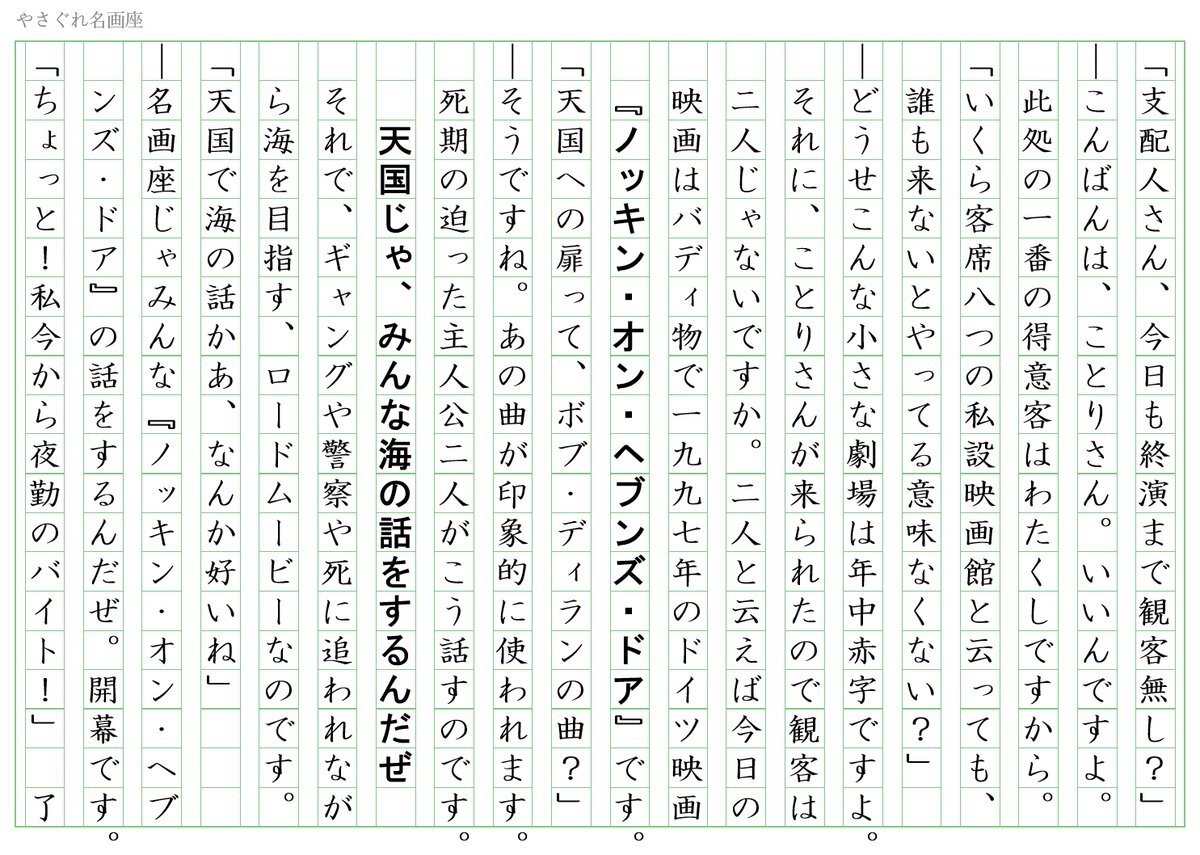 やさぐれ名画座
「支配人さん、今日も終演まで観客無し？」
―こんばんは、ことりさん。いいんですよ。
此処の一番の得意客はわたくしですから。
「いくら客席八つの私設映画館と云っても、
誰も来ないとやってる意味なくない？」
―どうせこんな小さな劇場は年中赤字ですよ。
それに、ことりさんが来られたので観客は
二人じゃないですか。二人と云えば今日の
映画はバディ物で一九九七年のドイツ映画
『ノッキン・オン・ヘブンズ・ドア』です。
「天国への扉って、ボブ・ディランの曲？」
―そうですね。あの曲が印象的に使われます。
死期の迫った主人公二人がこう話すのです。
天国じゃ、みんな海の話をするんだぜ
それで、ギャングや警察や死に追われなが
ら海を目指す、ロードムービーなのです。
「天国で海の話かあ、なんか好いね」
―名画座じゃみんな『ノッキン・オン・ヘブ
ンズ・ドア』の話をするんだぜ。開幕です。
「ちょっと！私今から夜勤のバイト！」　了